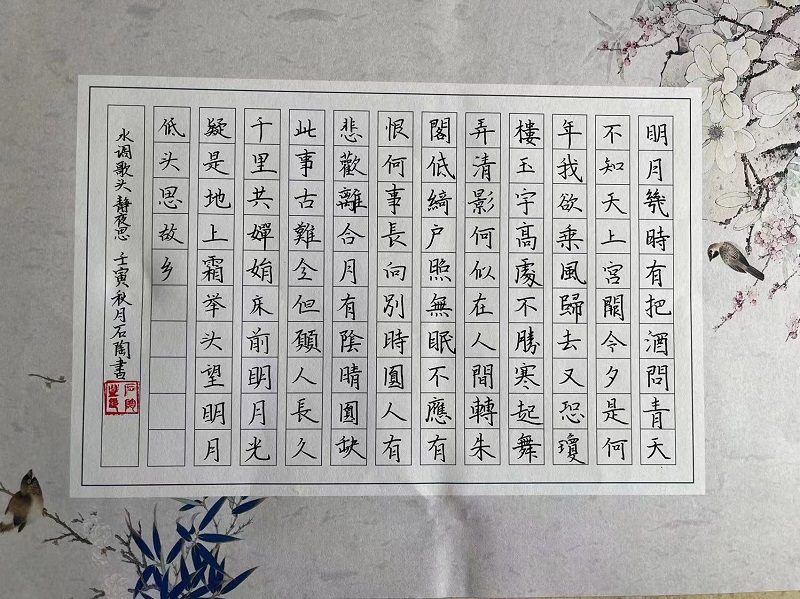 明月幾時有把酒問青天
不知天上宮闕今夕是何
年我欲乘風歸去又恐瓊
樓玉宇高處不勝寒起舞
弄清影何似在人間轉朱
閣低綺户照無眠不應有
恨何事長向別時圓人有
悲歡離合月有陰晴圓缺
此事古難全但願人長久
千里共嬋娟床前明月光
疑是地上霜举头望明月
低头思故乡
水调歌头 靜夜思 壬寅秋月石陶書